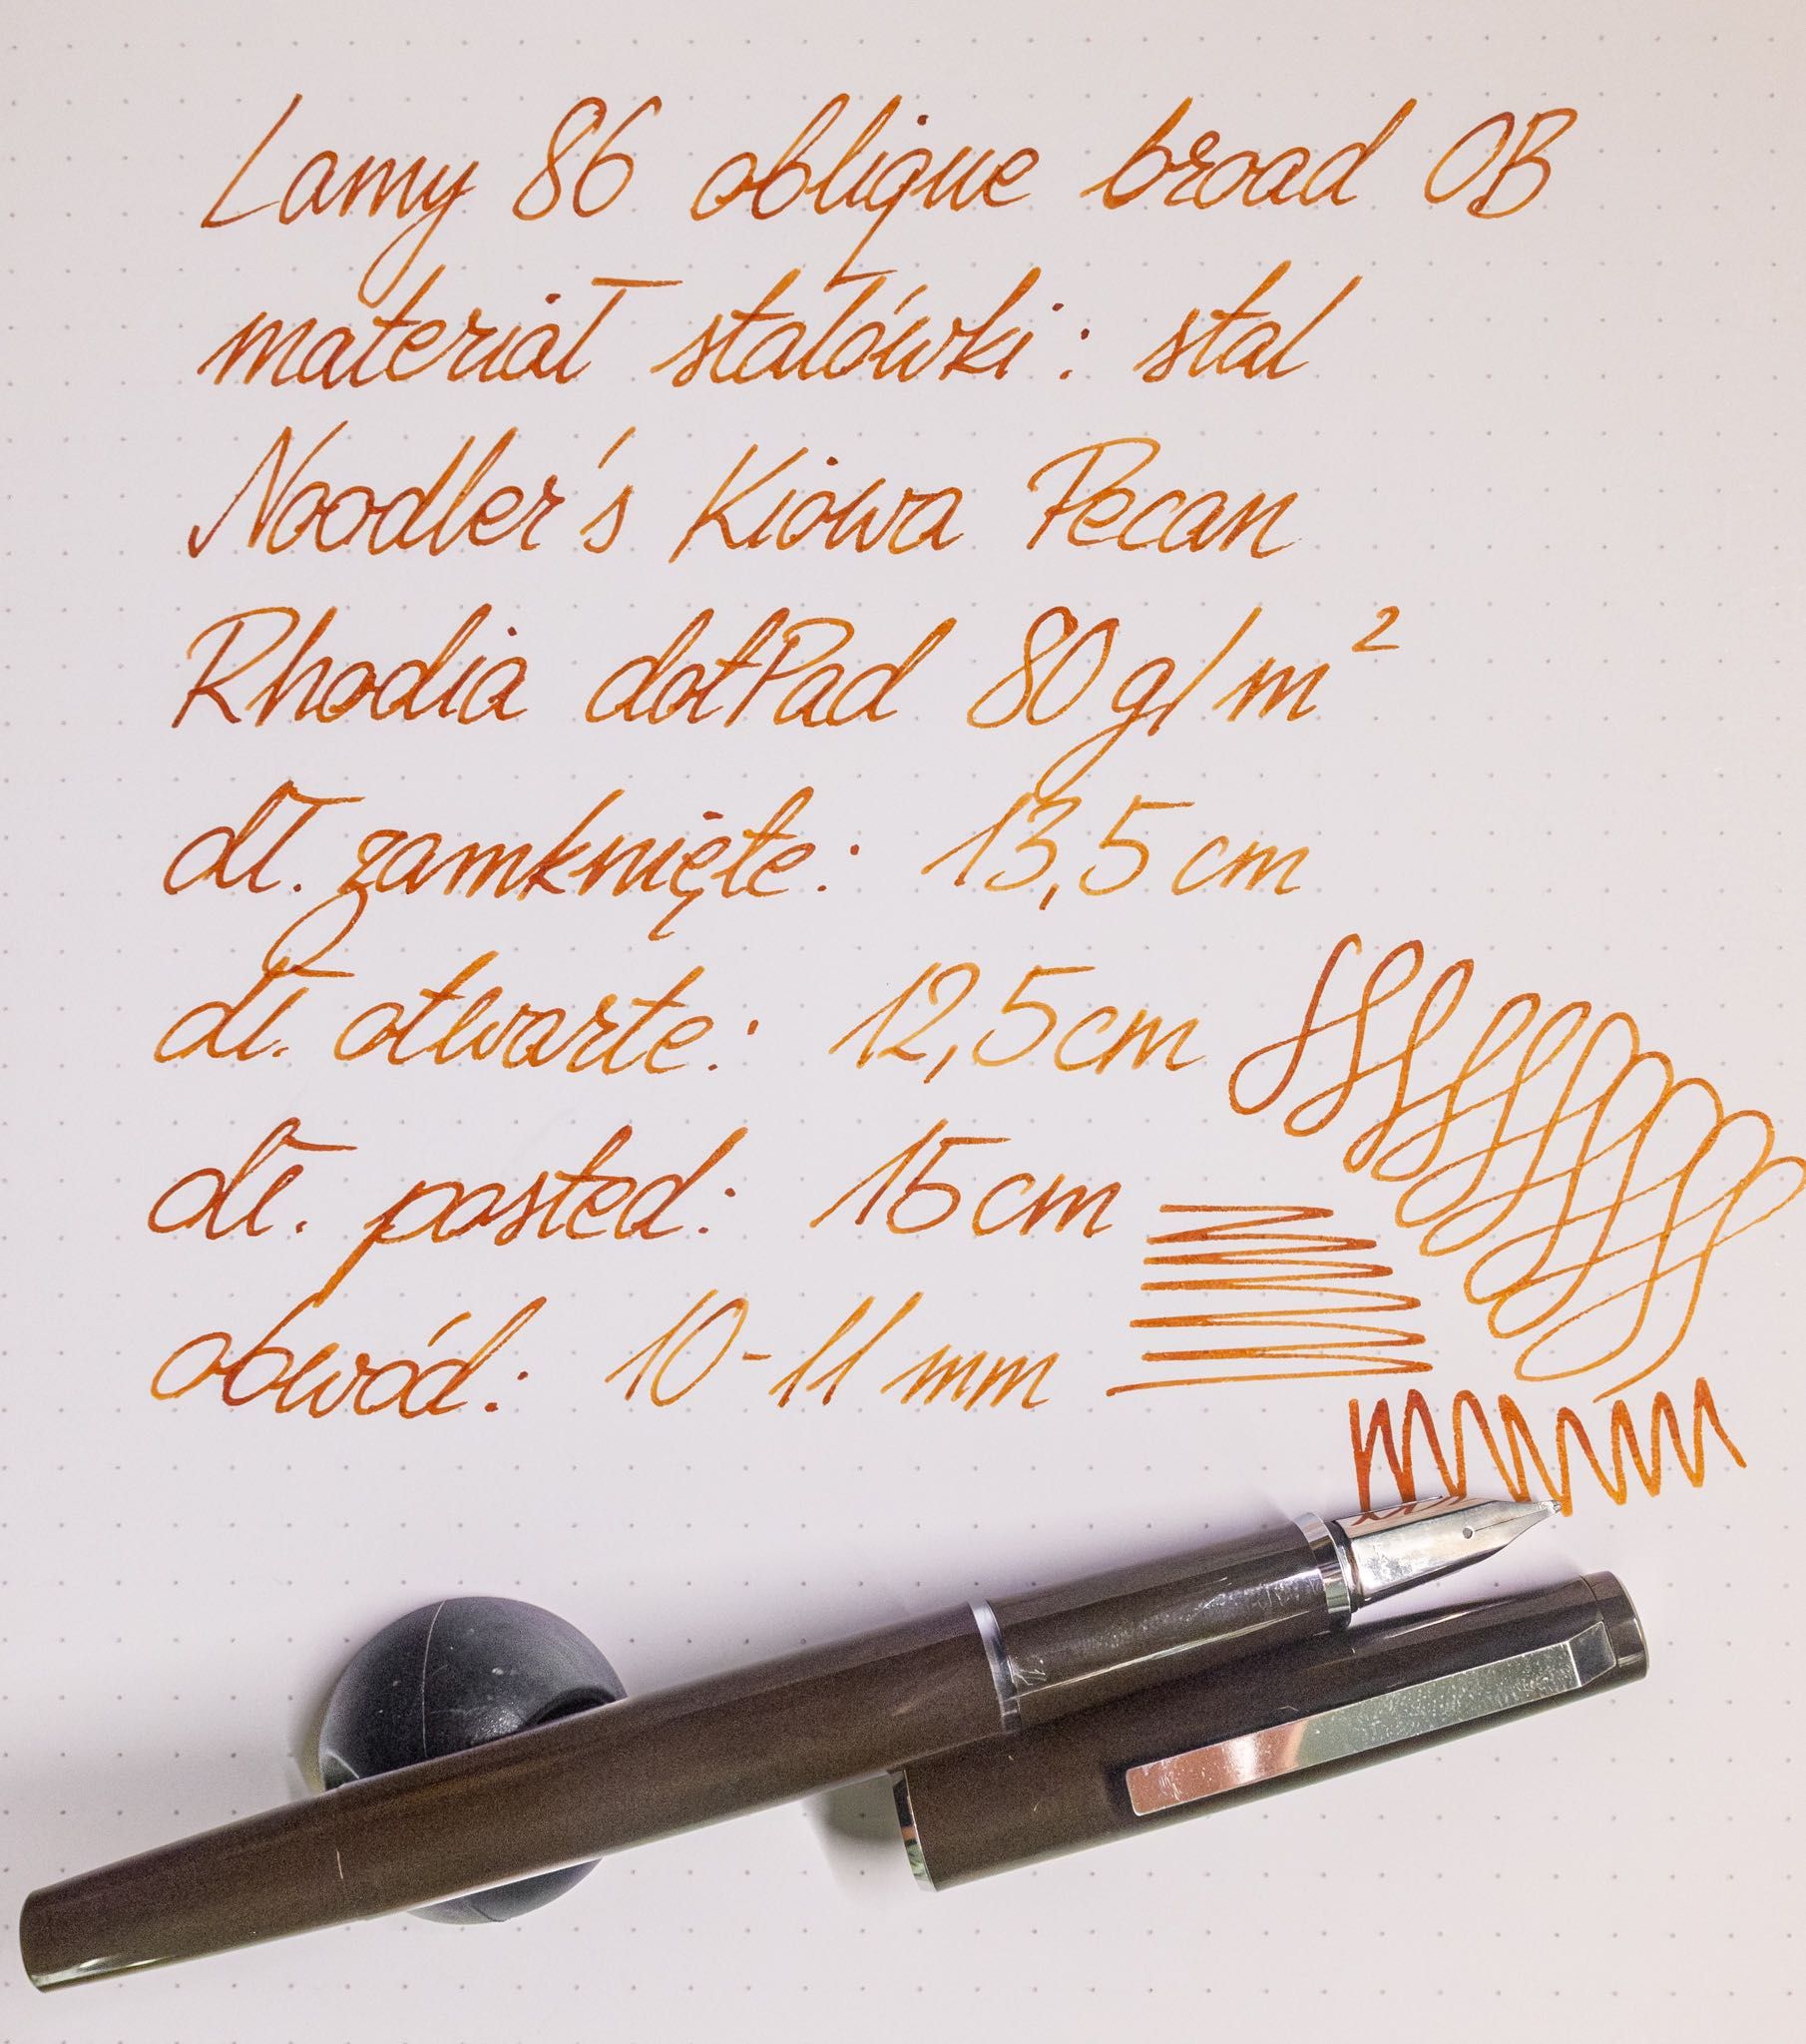 Lamy 86 oblique broad OB
materiał stalówki: stal
Noodler's Kiowa Pecan
Rhodia dotPad 80g/m²
dł. zamknięte: 13,5cm
dł. otwarte: 12,5cm
dł. posted: 15cm
obwód: 10-11mm